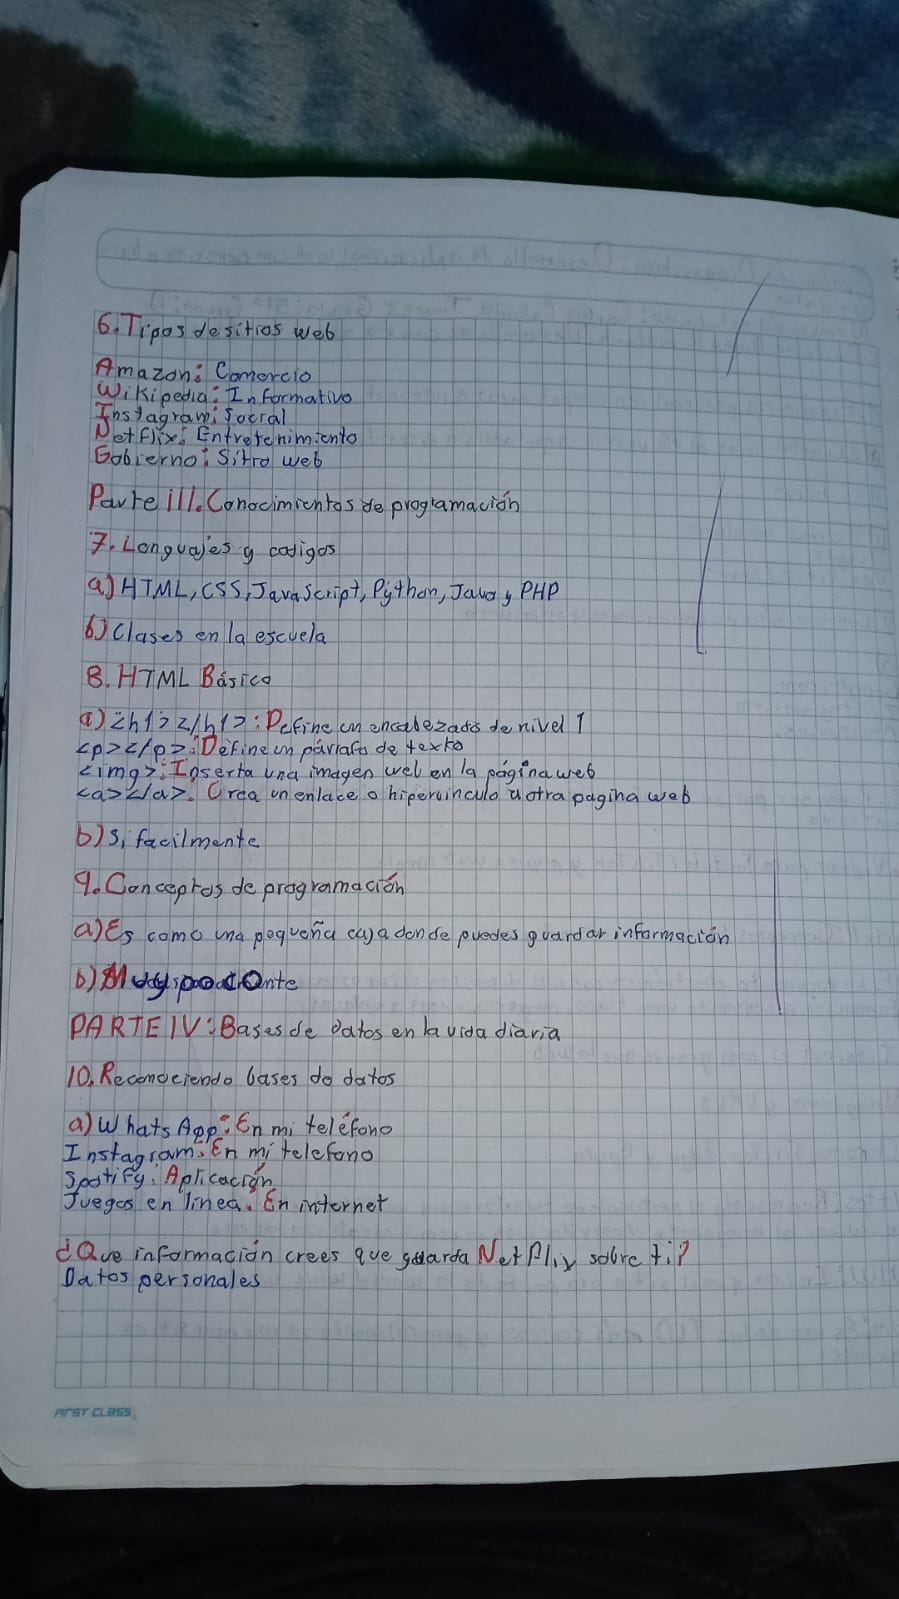 6. Tipos de sitios web
Amazon: Comercio
Wikipedia: Informativo
Instagram: Social
Netflix: Entretenimiento
Gobierno: Sitio web
Parte III. Conocimientos de programación
7. Lenguajes y codigos
a) HTML, CSS, JavaScript, Python, Java y PHP
b) Clases en la escuela
8. HTML Básico
a) <h1></h1>: Define un encabezado de nivel 1
<p></p>: Define un párrafo de texto
<img>: Inserta una imagen wel en la página web
<a></a>. Crea un enlace o hipervinculo a otra pagina web
b) Si facilmente
9. Conceptos de programación
a) Es como una pequeña caja donde puedes guardar información
b) Muy poco
PARTE IV: Bases de datos en la vida diaria
10. Reconociendo bases de datos
a) WhatsApp: En mi teléfono
Instagram: En mi telefono
Spotify: Aplicación
Juegos en linea. En internet
¿Que información crees que guarda Netflix sobre ti?
Datos personales
FIRST CLASS